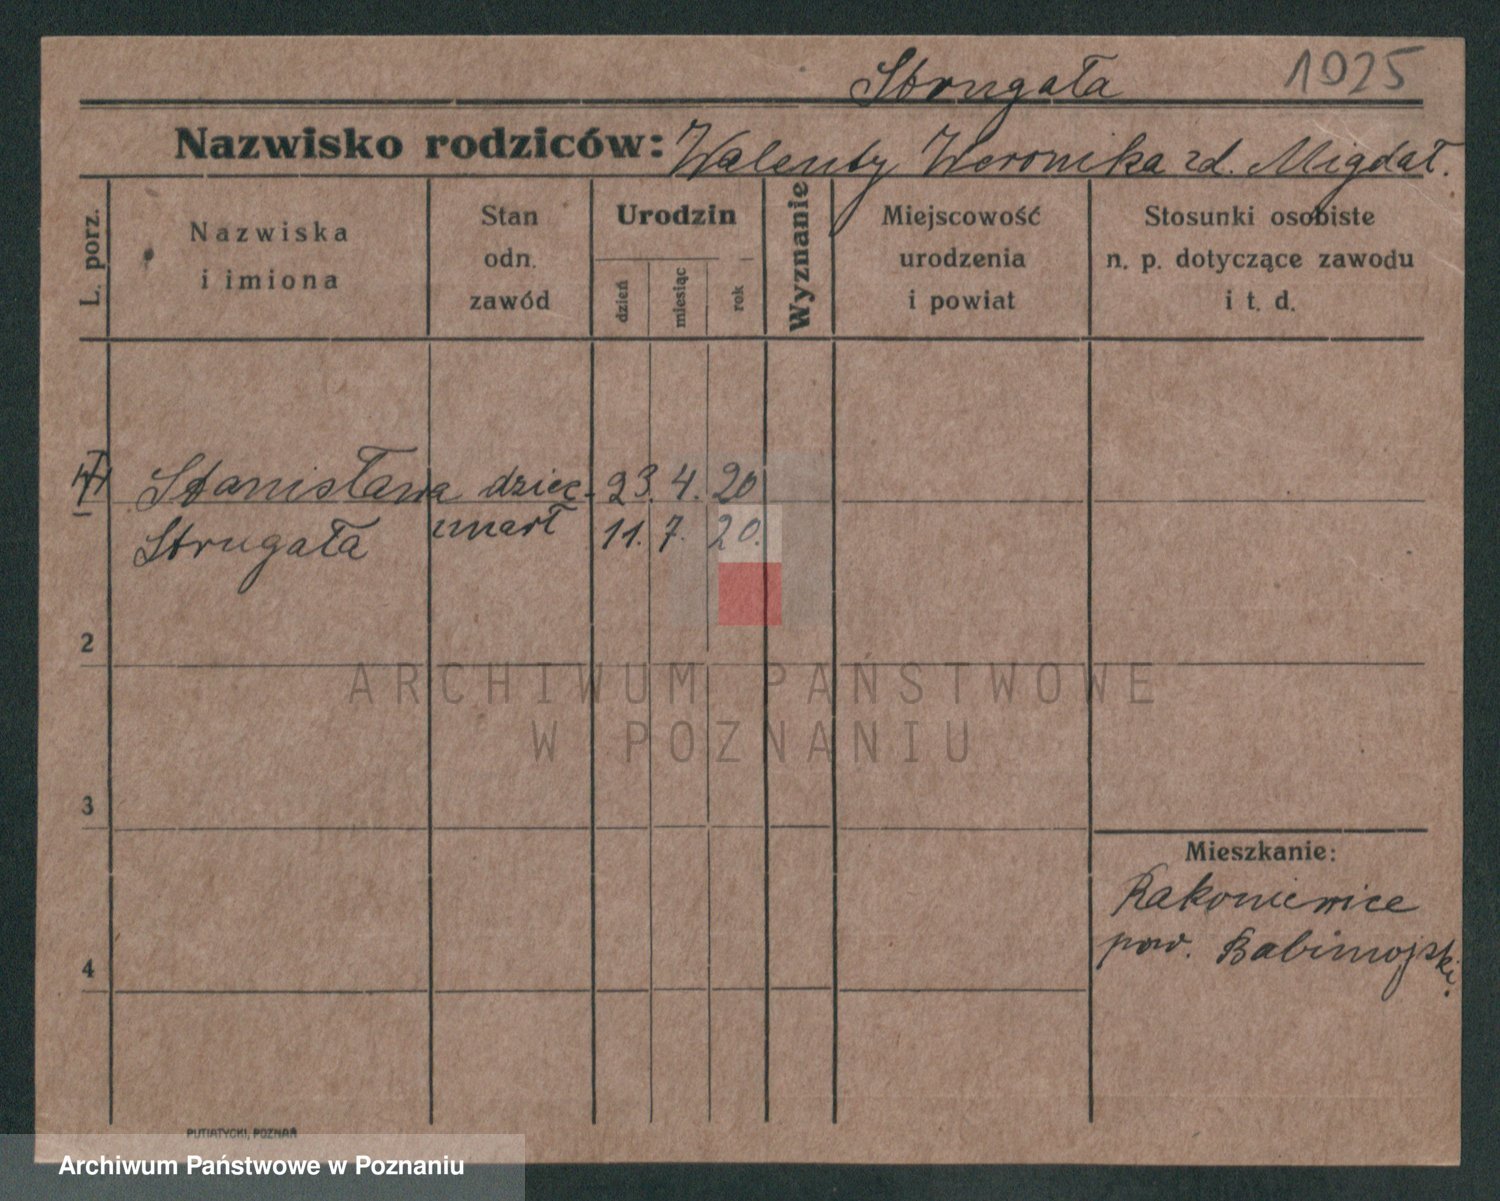 Strugała 1025
Nazwisko rodziców: Walenty Weronika zd. Migdał.
L. porz.
Nazwiska
i imiona
Stan
odn.
zawód
Urodzin
dzień
miesiąc
rok
Wyznanie
Miejscowość
urodzenia
i powiat
Stosunki osobiste
n. p. dotyczące zawodu
i t. d.
Stanisława dziec. 23. 4. 20
1
Strugała umarł 11. 7. 20.
2
ARCHIWUM PAŃSTWOWE
W POZNANIU
3
Mieszkanie:
Rakoniewice
pow. Babimojski.
4
PUTIATYCKI, POZNAŃ
Archiwum Państwowe w Poznaniu